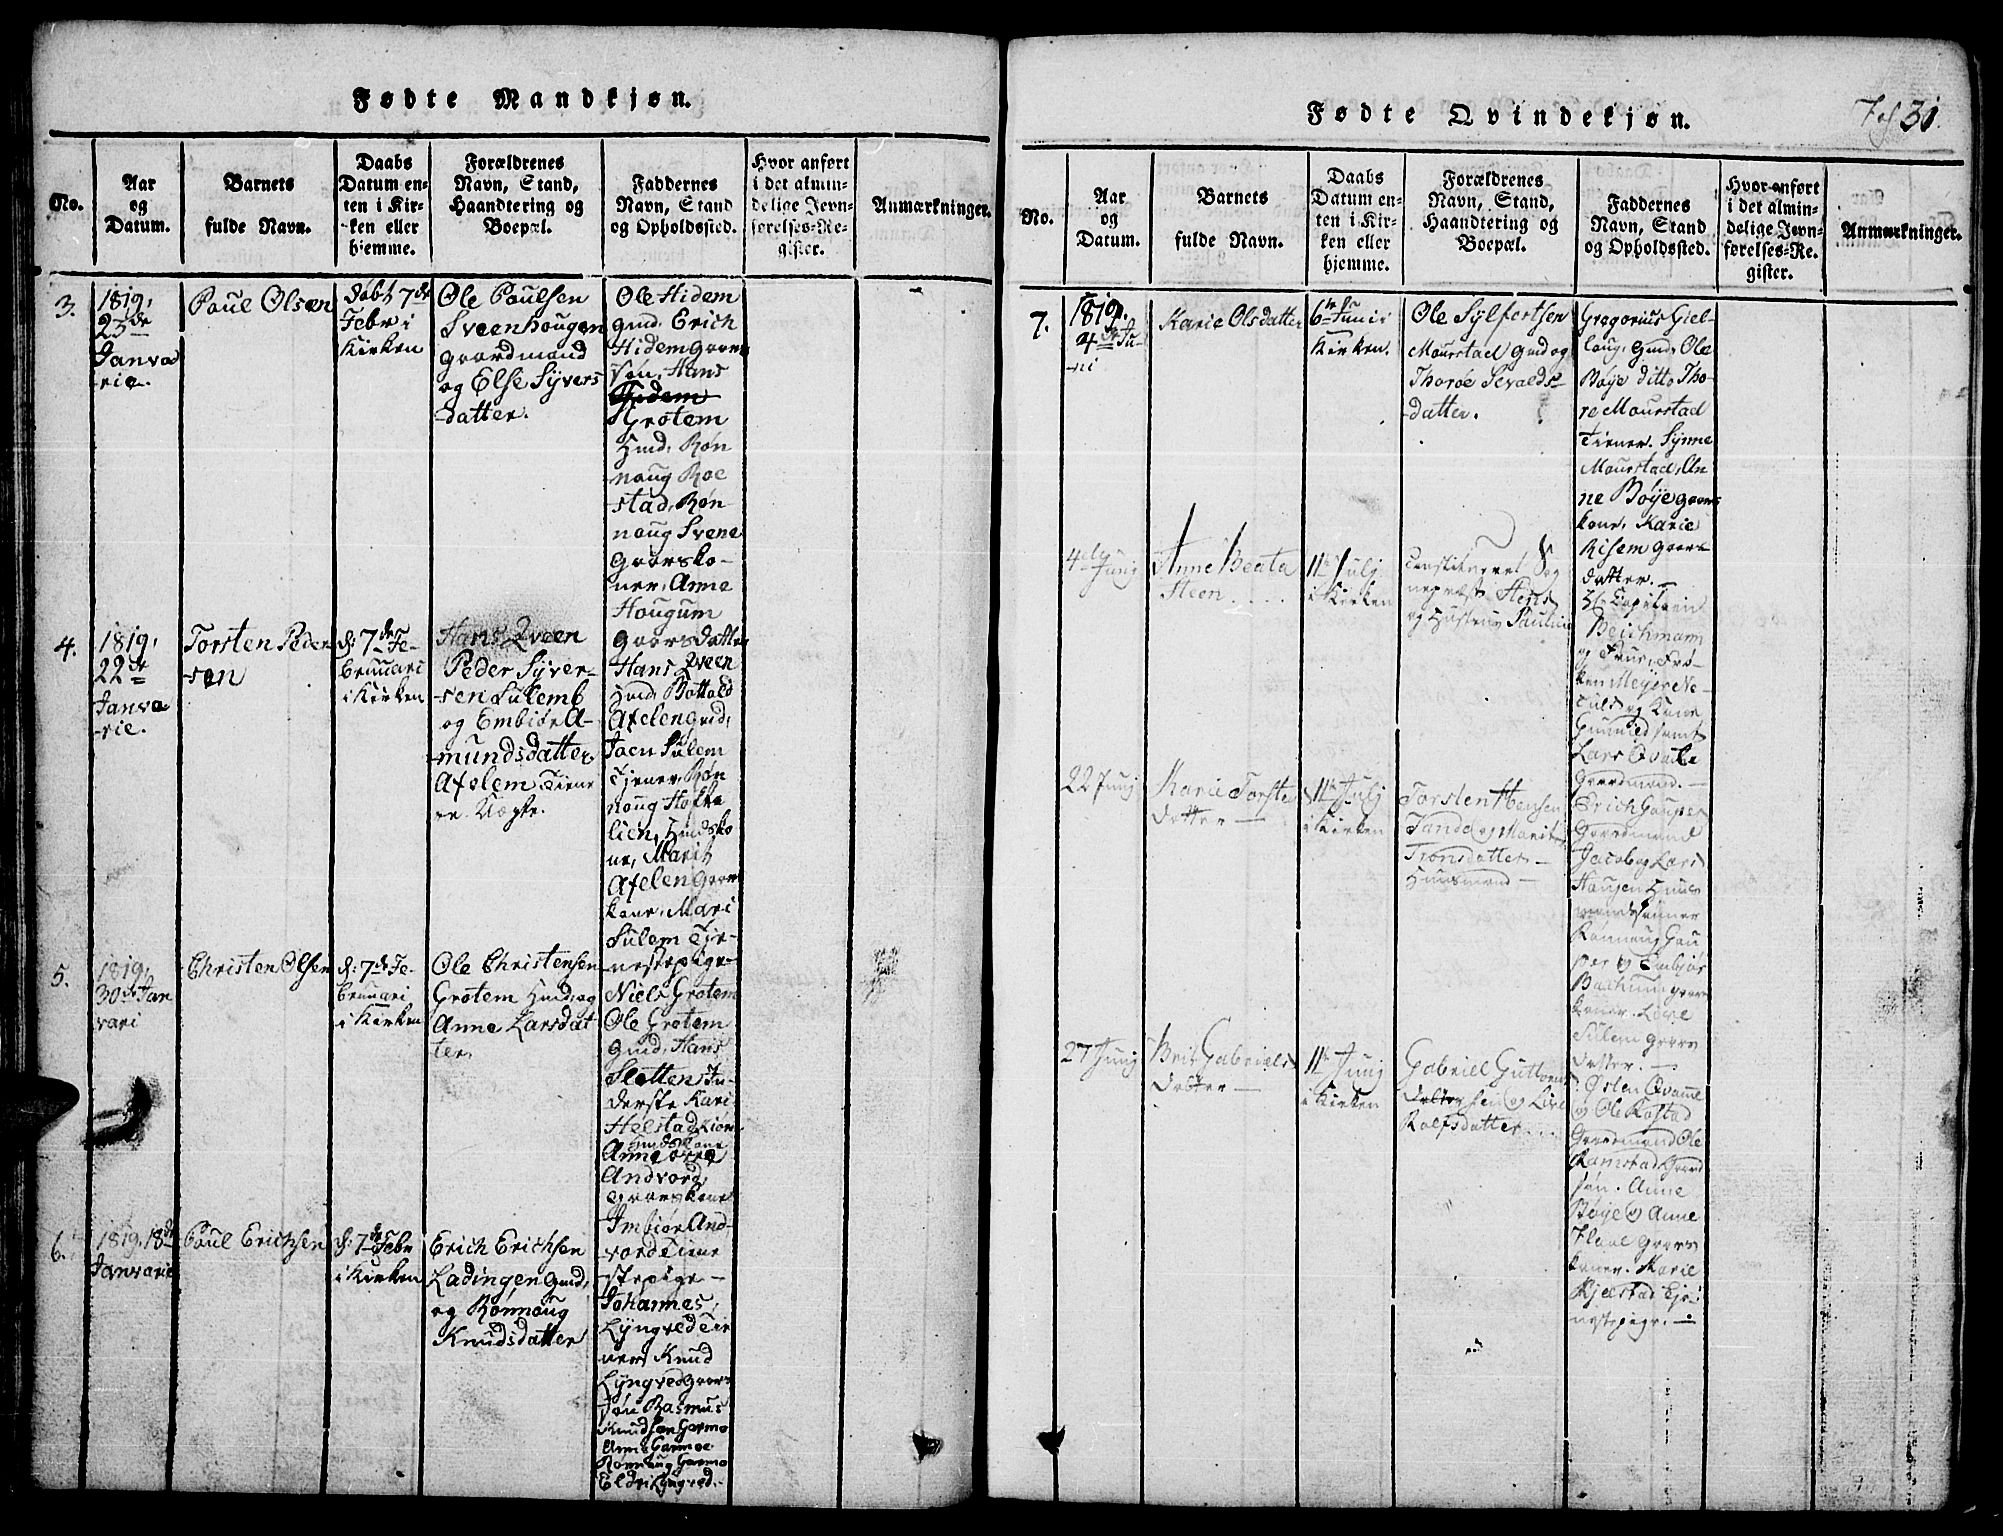 Fødte Mandkjøn.
No.
Aar
og
Datum.
Barnets
fulde Navn.
Daabs
Datum en-
ten i Kir-
ken eller
hjemme.
Forældrenes
Navn, Stand,
Haandtering og
Boepæl.
Faddernes
Navn, Stand
og Opholdssted.
Hvor anført
i det almin-
delige Jevn-
førelses-Re-
gister.
Anmærkninger.
3.
1819,
23de
Janva
rie.
Poul Olsen
Døbt 7de
Febr i
Kirken
Ole Poulsen
Sveenhougen
gaardmand
og Else Syvers
datter.
Ole Hidem
gmd, Erich
Hidem Gaard
søn, Hans
Grotem
Hmd, Røn
noug Roe
stad, Røn-
noug Svene
Gaarsko-
ner, Anne
Hougum
Gaarsdatter
4.
1819,
22de
Janva
rie.
Torsten Peder
sen
d: 7de Fe-
bruari
i Kirken
Hans Qveen
Peder Syver-
sen Sulemb
og Embiør A-
mundsdatter
Afelem, Tiene
re. Uægte.
Hans Qveen
Hmd, Bottold
Afelen Gmd,
Joen Sulem
Tjener, Røn
noug Holke
lien, Hmdsko
ne, Marit
Afelen Gaar
kone, Mari
Sulem Tje-
nestepige
5.
1819,
30de Jan
vari
Christen Olsen
d: 7de Fe-
bruari
i Kirken
Ole Christensen
Grotem Hmd, og
Anne Larsdat
ter,
Niels Grotem
Ole Grotem
Gmd, Hans
Sletten In-
derste Kari
Helstad
Hmdskone
Anne
Andvord,
Gaarskone
Imbiør And-
vord Tiene
stepige
6.
1819, 18de
Janvarie
Poul Erichsen
d: 7de Febr
i Kirken
Erich Erichsen
Ladingen Gmd,
og Rønnoug
Knudsdatter
Johannes
Lyngved Tie
ner, Knud
Lyngved Gaars
søn Rasmus
Knudsen Garmo
Anne Garmoe
Rønnoug Garmo
Eldri Lyngved.
Fødte Qvindekjøn.
31.
No.
Aar
og
Datum.
Barnets
fulde Navn.
Daabs
Datum en-
ten i Kir-
ken eller
hjemme.
Forældrenes
Navn, Stand,
Haandtering og
Boepæl.
Faddernes
Navn, Stand
og Opholdssted.
Hvor anført
i det almin-
delige Jevn-
førelses-Re-
gister.
Anmærkninger.
7.
1819.
4de Ju-
ni
Karie Olsdatter
6te Juni i
Kirken.
Ole Sylfestsen
Mourstad Gmd og
Thorøe Sevalds-
datter.
Gregorius Giel-
loug, Gmd, Ole
Bøye ditto Tho-
re Mourstad
Tiener. Synne
Mourstad, An
ne Bøye Gaars
kone, Karie
Risem Gaars
datter.
4de Junij
Anne Beata
Steen
11te Julj
i Kirken
Constitueret Sog
nepræst Steen
og Hustrue Pauline
Hr Capitain
Beichmann
og Frue, Frø-
ken Meyer
Lars Qvale
Gaardmand.
22 Junij
Marie Torsten
Datter
11te Julj
i Kirken
Torsten Hansen
Tande og Marit
Tronsdatter
Huusmand
Erich Gauper
Gaardmand
Jacob og Lars
Haugen Huus
mandsønner
Rønnoug Gau
per og Embjør
Bachum Gaars
koner. Live
Sulem Gaars
datter.
27 Junij
Brit Gabriels
Datter
11te Junij
i Kirken
Gabriel Guttorms
sen og Live
Rolfsdatter
Østen Qvamme
og Ole Rostad
Gaardmænd Ole
Ramstad Gaard
søn. Anne
Bøye og Anne
Gaars
koner. Marie
Kjæstad Tje-
nestepige.